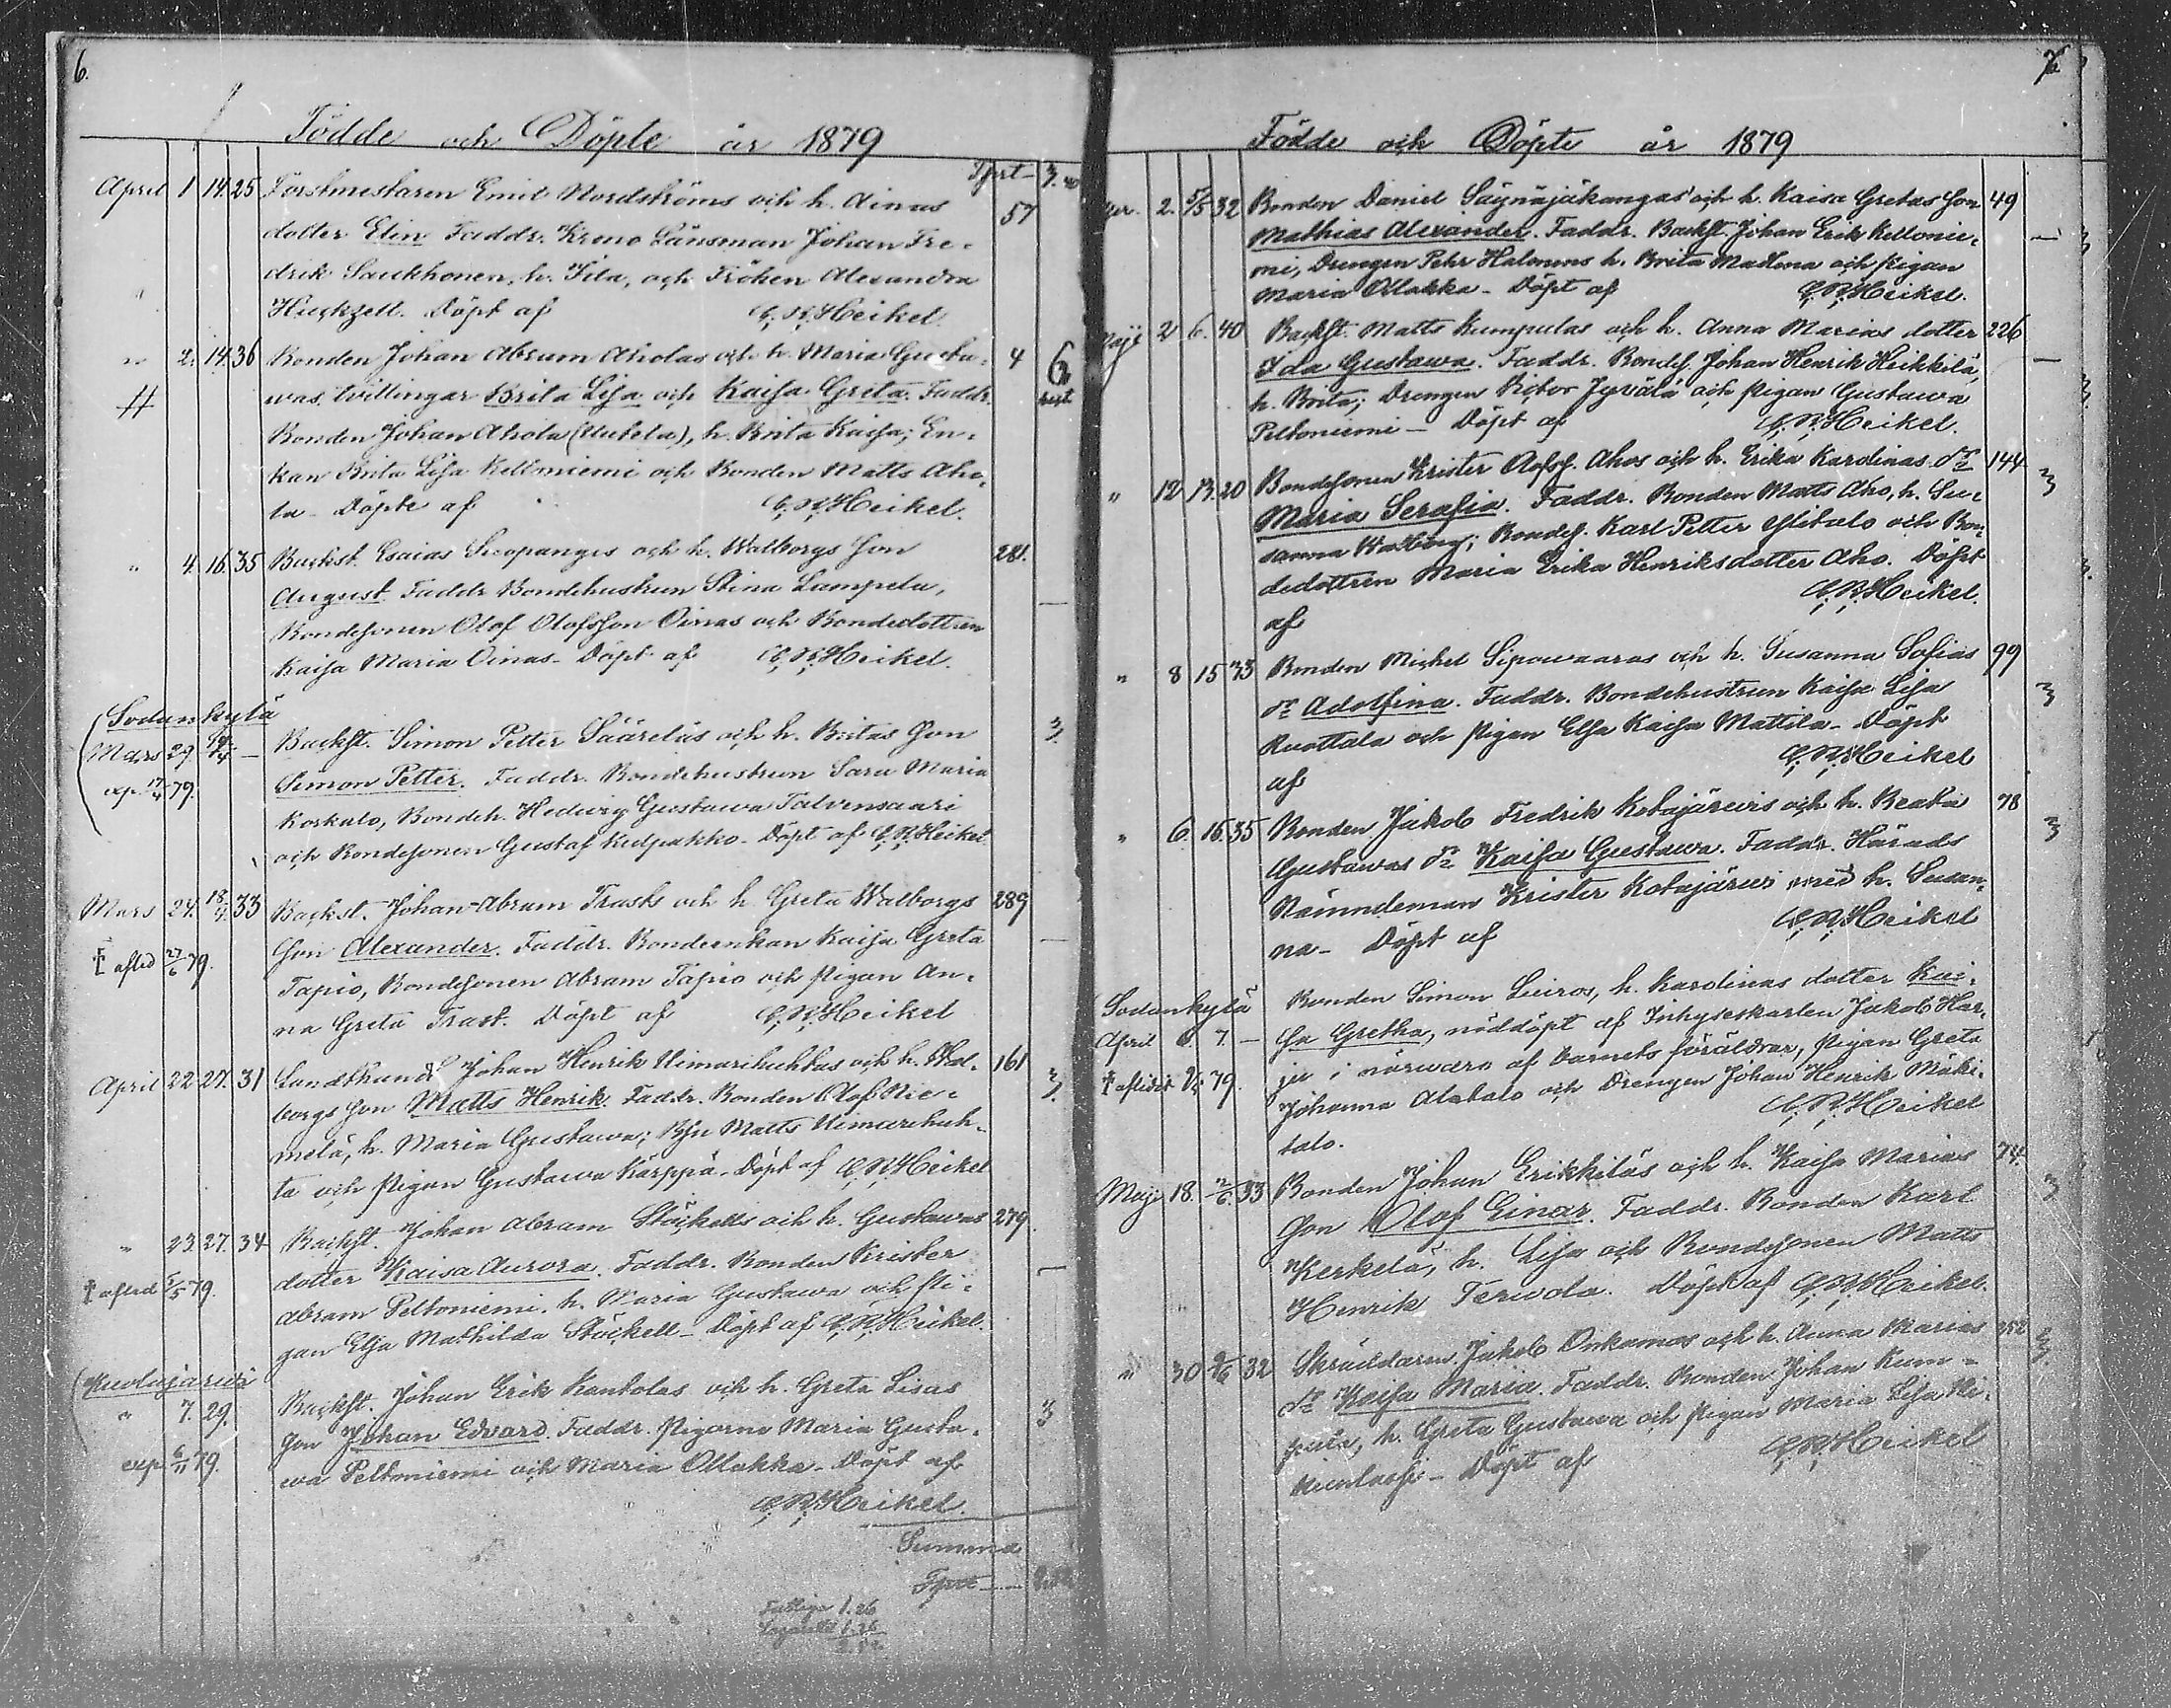 6.
Födde och Döpte år 1879
Tjprt 3.
April 1 14. 25 Forstmestaren Emil Nordströms och h. Ainas 57
dotter Elin Faddr. Krono Länsman Johan Fre-
drik Saukkonen, h. Iita, och Fröken Alexandra
Huckzell. Döpt af C. R. Heikel.
" 2. 14. 36 Bonden Johan Abram Aholas och h. Maria Gusta- 4 6
# was tvillingar Brita Lisa och Kaisa Greta. Faddr.
Bonden Johan Ahola (Uutela), h. Brita Kaisa; En-
kan Brita Lisa Keltoniemi och Bonden Matts Aho-
la – Döpte af C. R. Heikel.
" 4. 16. 35 Backst. Esaias Seopanges och h. Walborgs son 281.
August. Faddr Bondehustrun Stina Lampela, —
Bondesonen Olof Olofsson Oinas och Bondedottren
Kaisa Maria Oinas – Döpt af C. R. Heikel.
(Sodankylä
Mars 29. — Backst. Simon Petter Sääreläs och h. Britas son 3.
exp. 17/4 79. Simon Petter. Faddr. Bondehustrun Sara Maria
Korkalo, Bondeh. Hedwig Gustawa Talvensaari
och Bondesonen Gustaf Kulpakko – Döpt af C. R. Heikel
Mars 24. 18/4 33 Backst. Johan Abram Trasks och h. Greta Walborgs 289
† afled 27/6 79. son Alexander. Faddr. Bondeenkan Kaisa Greta —
Tapio, Bondesonen Abram Tapio och Pigan An-
na Greta Trask. Döpt af C. R. Heikel
April 22 27. 31 Landbond Johan Henrik Niemarihuhtas och h. Wal- 161
borgs son Matts Henrik. Faddr. Bonden Olof Nie- 3.
melä, h. Maria Gustawa; Bsn Matts Niemarihuh-
ta och Pigan Gustawa Kärppä – Döpt af C. R. Heikel
" 23. 27. 34 Backst. Johan Abram Stöckells och h. Gustawas 279.
† afled 5/5 79. dotter Kaisa Aurora. Faddr. Bonden Krister —
Abram Peltoniemi, h. Maria Gustawa och Pi-
gan Elsa Mathilda Stöckell – Döpt af C. R. Heikel.
(Kuolajärvi
" 7. 29. Backst. Johan Erik Kankolas och h. Greta Lisas
exp. 6/11 79. son Johan Edvard. Faddr. Pigorna Maria Gusta- 3
wa Peltoniemi och Maria Ollakka – Döpt af
C. R. Heikel.
Summa
Tjprt
Fattiga 1.26
1.26
7
Födde och Döpte år 1879
2. 5/5 32 Bonden Daniel Säynäjäkangas och h. Kaisa Gretas son 49
Mathias Alexander. Faddr. Backst. Johan Erik Keltonie- —
mi, Drengen Pehr Halmens h. Brita Mallena och Pigan
Maria Ollakka – Döpt af C. R. Heikel.
Maji 2 6. 40 Backst. Matts Kumpulas och h. Anna Marias dotter 226
Ida Gustawa. Faddr. Bondes. Johan Henrik Heikkilä, —
h. Brita; Drengen Viktor Jyvälä och Pigan Gustawa
Peltoniemi – Döpt af C. R. Heikel.
" 12 13. 20 Bondesonen Krister Olofss. Ahos och h. Erika Karolinas dr 144
Maria Serafia. Faddr. Bonden Matts Aho, h. Su- 3
sanna Walborg; Bondes. Karl Petter Ylitalo och Bon-
dedottren Maria Erika Henriksdotter Aho. Döpt
af C. R. Heikel.
" 8 15 33 Bonden Michel Sipowaaras och h. Susanna Sofias 99
dr Adolfina. Faddr. Bondehustrun Kaisa Lisa 3
Ruottala och Pigan Elsa Kaisa Mattila – Döpt
af C. R. Heikel
" 6. 16. 35 Bonden Jakob Fredrik Kotajärwis och h. Beata 78
Gustawas dr Kaisa Gustawa. Faddr. Härads 3
Nämndeman Krister Kotajärwi med h. Susan-
na – Döpt af C. R. Heikel
Sodankylä Bonden Simon Luiros, h. Karolinas dotter Kai-
April 6. 7. — sa Gretha, nöddöpt af Inhyseskarlen Jakob Har-
† afliden 79. ju i närwaro af barnets föräldrar, Pigan Greta
Johanna Alatalo och Drengen Johan Henrik Mäki-
talo. C. R. Heikel
Maji 18. 2/6. 33 Bonden Johan Erikkiläs och h. Kaisa Marias 74.
son Olof Einar. Faddr. Bonden Karl 3
Kerkelä, h. Lisa och Bondesonen Matts
Henrik Terwola. Döpt af C. R. Heikel.
" 30 2/6 32 Skräddaren Jakob Onkamos och h. Anna Marias 252
dr Kaisa Maria. Faddr. Bonden Johan Kum- 3.
pula, h. Greta Gustawa och Pigan Maria Lisa Ni-
– Döpt af C. R. Heikel